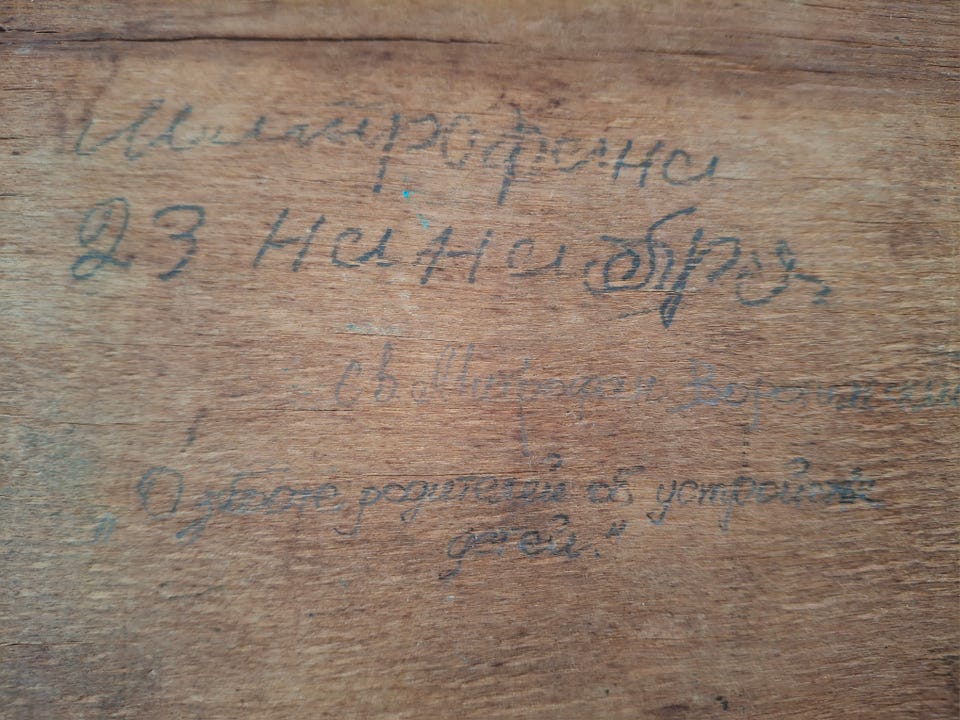 Митрофана
23 нанабря
Св. Митрофан Воронежский
"О заботе родителей об устройстве
детей."